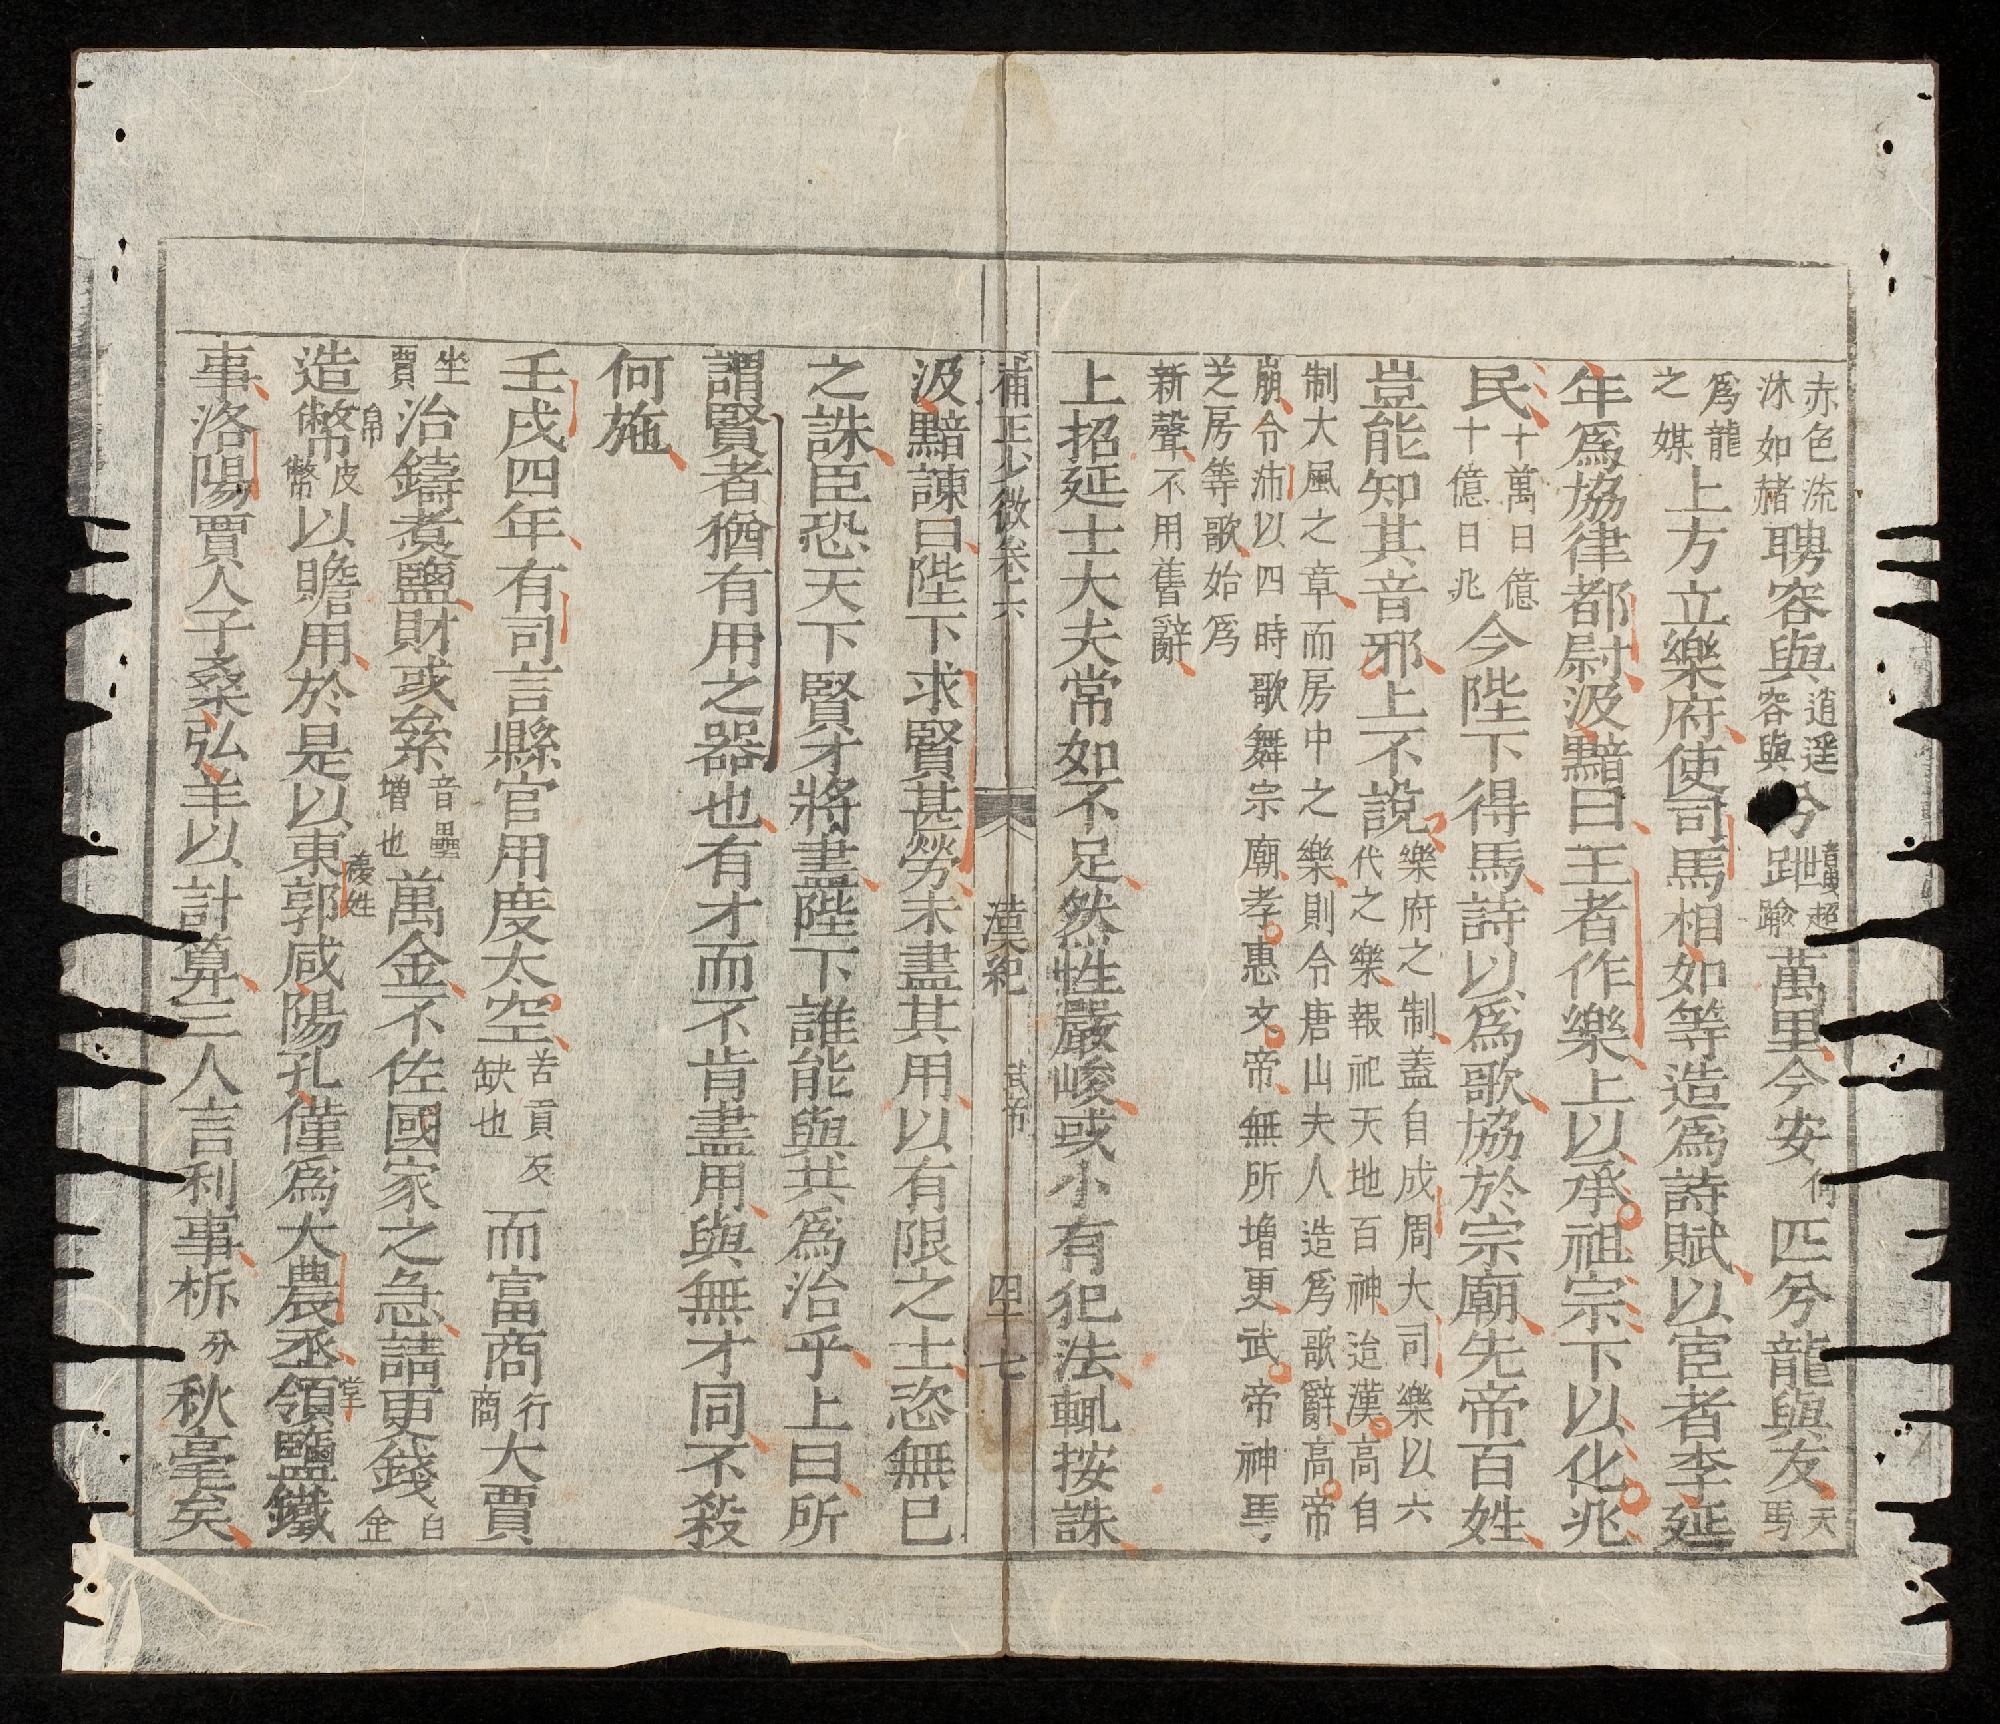 赤色流沐如赭聘容與逍遥容與兮跇超踰萬里今安何匹兮龍與友天馬
爲龍之媒上方立樂府使司馬相如等造爲詩賦以宦者李延
年爲協律都尉汲黯曰王者作樂上以承祖宗下以化兆
民十萬曰億十億曰兆今陛下得馬詩以爲歌協於宗廟先帝百姓
豈能知其音邪上不說樂府之制蓋自成周大司樂以六代之樂報祀天地百神迨漢高自
制大風之章而房中之樂則令唐山夫人造爲歌辭高帝
崩令沛以四時歌舞宗廟孝惠文帝無所增更武帝神馬
芝房等歌始爲
新聲不用舊辭
上招延士大夫常如不足然性嚴峻或小有犯法輒按誅
補正少微卷六 漢紀 武帝 四七
汲黯諫曰陛下求賢甚勞未盡其用以有限之士恣無已
之誅臣恐天下賢才將盡陛下誰能與共爲治乎上曰所
謂賢者猶有用之器也有才而不肯盡用與無才同不殺
何施
壬戌四年有司言縣官用度太空苦貢反缺也而富商行商大賈
坐賈治鑄煮鹽財或絫音壘增也萬金不佐國家之急請更錢白金
造幣帛皮幣以贍用於是以東郭複姓咸陽孔僅爲大農丞領掌鹽鐵
事洛陽賈人子桑弘羊以計算三人言利事析分秋毫矣